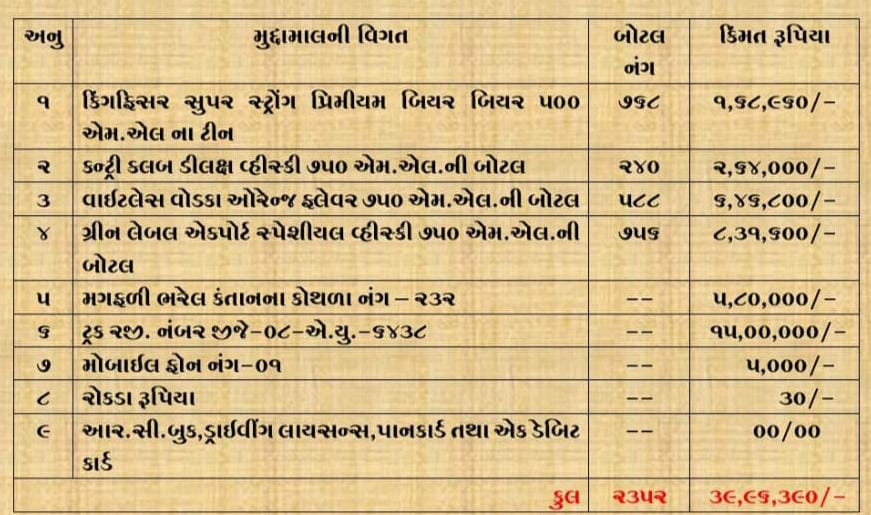 અનુ મુદ્દામાલની વિગત બોટલ નંગ કિંમત રૂપિયા
૧ કિંગફિસર સુપર સ્ટ્રોંગ પ્રિમીયમ બિયર બિયર ૫૦૦ ૭૬૮ ૧,૬૮,૯૬૦/-
એમ.એલ ના ટીન
૨ કન્ટ્રી કલબ ડીલક્ષ વ્હીસ્કી ૭૫૦ એમ.એલ.ની બોટલ ૨૪૦ ૨,૬૪,૦૦૦/-
૩ વાઈટલેસ વોડકા ઓરેન્જ ફ્લેવર ૭૫૦ એમ.એલ.ની બોટલ ૫૮૮ ૬,૪૬,૮૦૦/-
૪ ગ્રીન લેબલ એકપોર્ટ સ્પેશીયલ વ્હીસ્કી ૭૫૦ એમ.એલ.ની ૭૫૬ ૮,૩૧,૬૦૦/-
બોટલ
૫ મગફળી ભરેલ કંતાનના કોથળા નંગ – ૨૩૨ -- ૫,૮૦,૦૦૦/-
૬ ટ્રક રજી. નંબર જીજે-૦૮-એ.યુ.-૬૪૩૮ -- ૧૫,૦૦,૦૦૦/-
૭ મોબાઈલ ફોન નંગ-૦૧ -- ૫,૦૦૦/-
૮ રોકડા રૂપિયા -- ૩૦/-
૯ આર.સી.બુક,ડ્રાઈવીંગ લાયસન્સ,પાનકાર્ડ તથા એક ડેબિટ -- ૦૦/૦૦
કાર્ડ
કુલ ૨૩૫૨ ૩૯,૯૬,૩૯૦/-